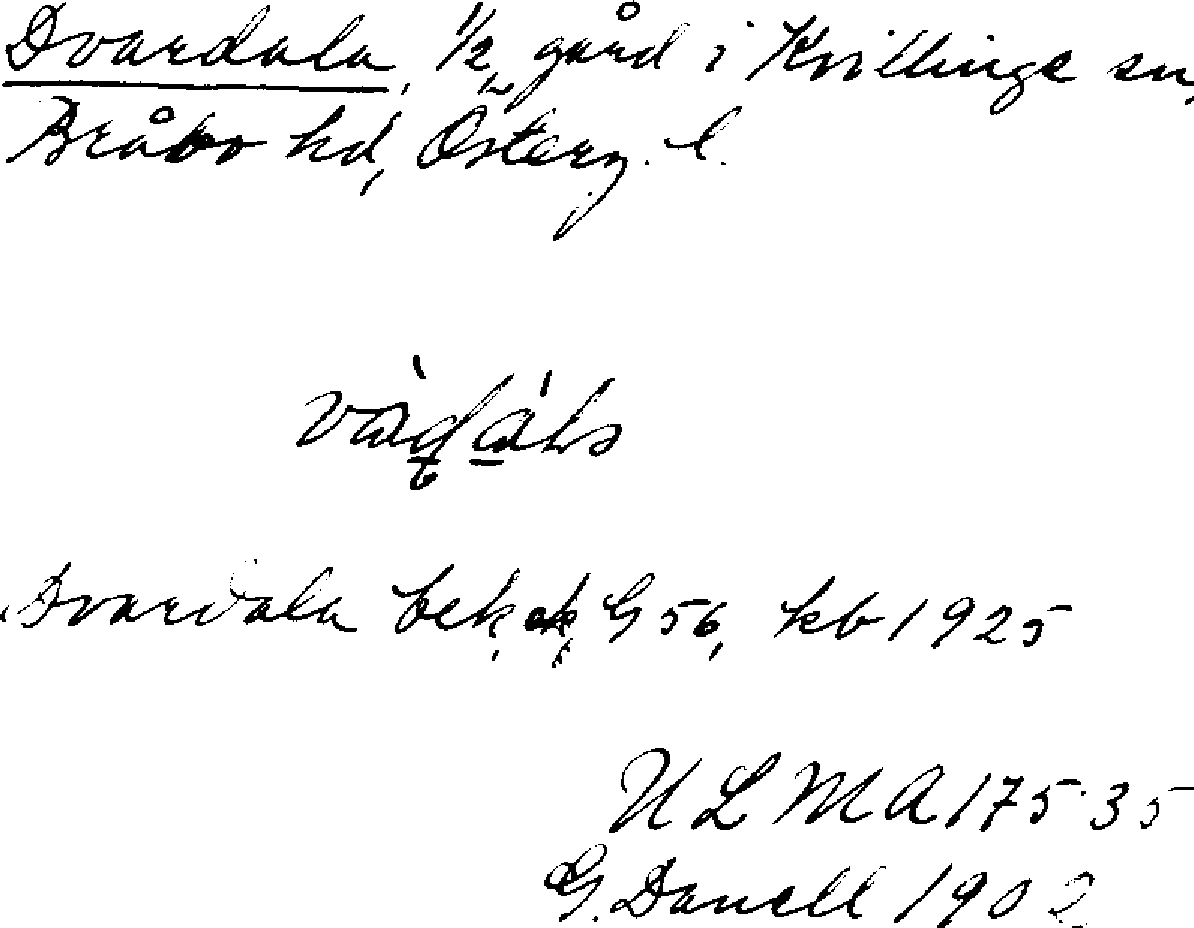 Dvardala, 1/2 gård i Kvillinge sn,
Bråbo hd, Österg. l.
Dvardala bek, G 56, kb 1925
ULMA 175:35
G. Danell 1902